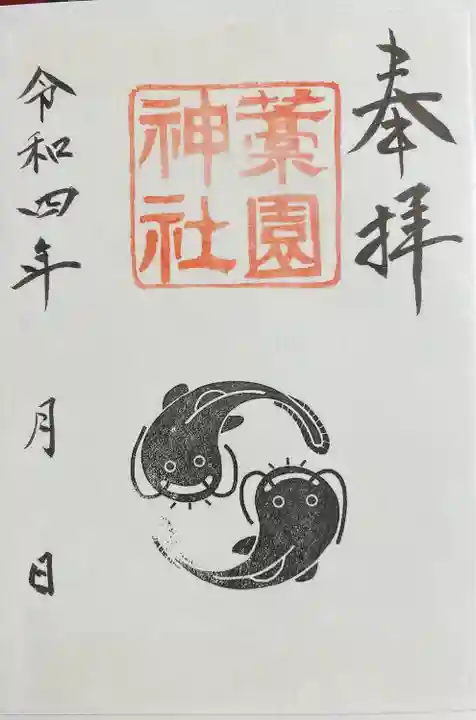 奉拝
藁園
神社
令和四年 月 日